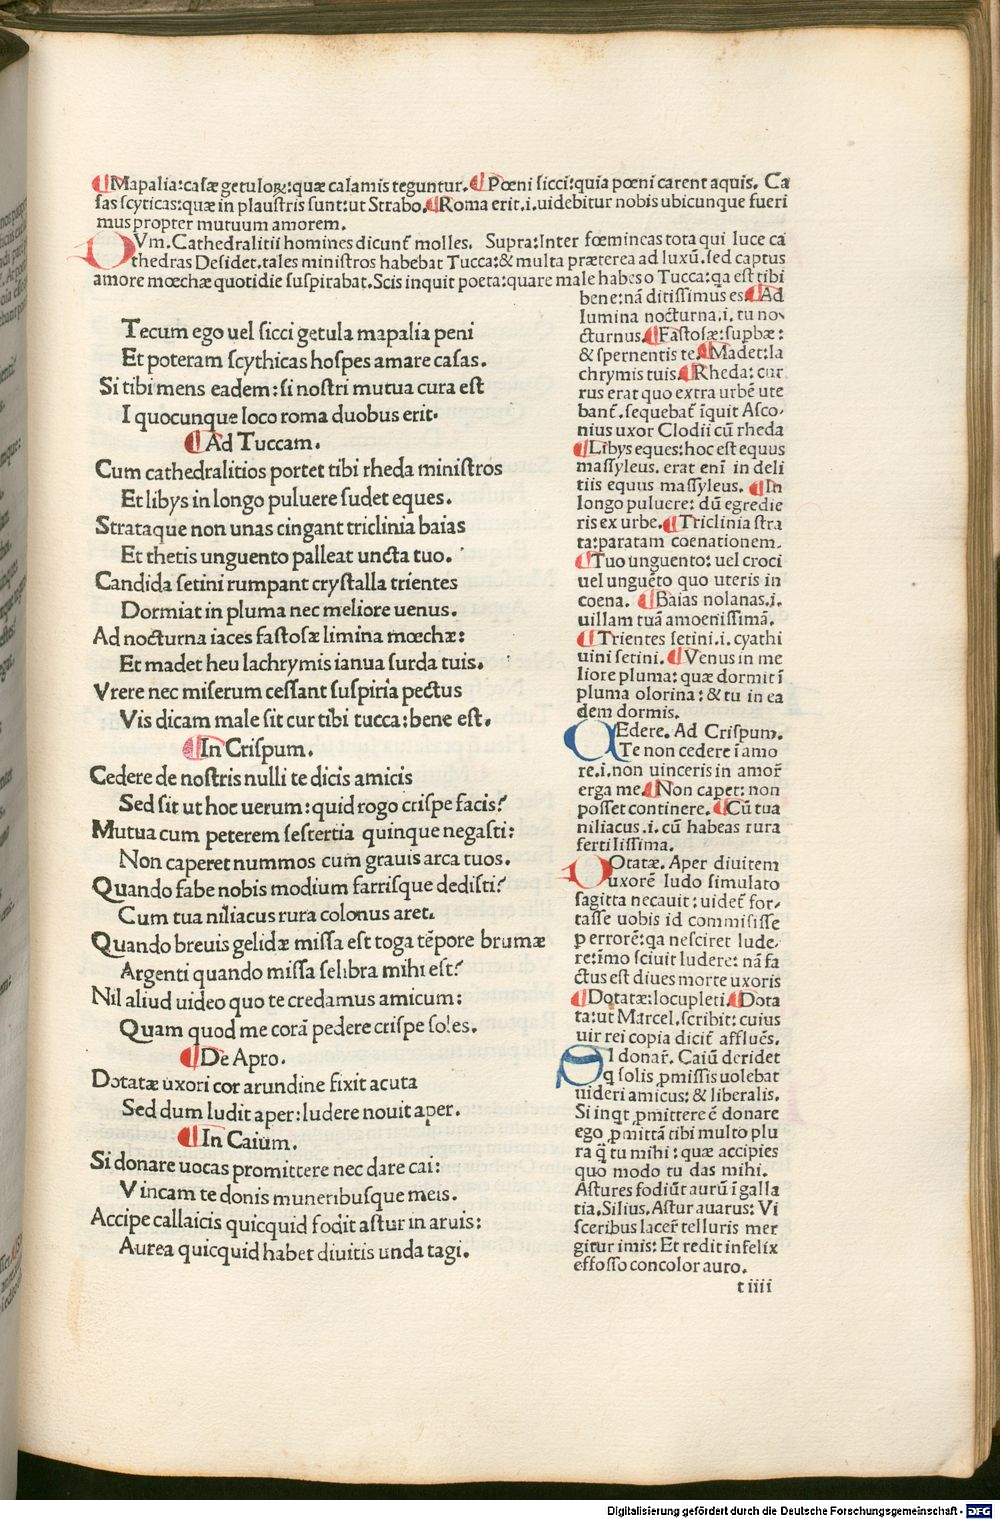 ¶Mapalia:casæ getuloꝝ:quæ calamis teguntur.¶Pœni sicci:quia pœni carent aquis. Ca
sas scyticas:quæ in plaustris sunt:ut Strabo.¶Roma erit.i.uidebitur nobis ubicunque fueri
mus propter mutuum amorem.
Vm. Cathedralitii homines dicunt̃ molles. Supra:Inter fœmineas tota qui luce ca
thedras Desidet.tales ministros habebat Tucca:& multa præterea ad luxũ.sed captus
amore mœchæ quotidie suspirabat.Scis inquit poeta:quare male habes o Tucca:qa est tibi
bene:nã ditissimus es.¶Ad
lumina nocturna.i.tu no-
cturnus.¶Fastosæ:supbæ:
& spernentis te.¶Madet:la
chrymis tuis.¶Rheda:cur
rus erat quo extra urbẽ ute
bant̃.sequebat̃ ĩquit Asco-
nius uxor Clodii cũ rheda
¶Libys eques:hoc est equus
massyleus.erat enĩ in deli
tiis equus massyleus.¶In
longo puluere:dũ egredie
ris ex urbe.¶Triclinia stra
ta:paratam coenationem.
¶Tuo unguento:uel croci
uel unguẽto quo uteris in
coena. ¶Baias nolanas.i.
uillam tuã amoenissimã.
¶Trientes setini.i.cyathi
uini setini.¶Venus in me
liore pluma:quæ dormit ĩ
pluma olorina:& tu in ea
dem dormis.
Edere. Ad Crispum.
Te non cedere ĩ amo
re.i.non uinceris in amor̃
erga me.¶Non caper:non
posset continere.¶Cũ tua
niliacus.i.cũ habeas rura
fertilissima.
Otatæ. Aper diuitem
uxorẽ ludo simulato
sagitta necauit:uidet̃ for-
tasse uobis id commisisse
p errorẽ:qa nesciret lude-
re:imo sciuit ludere:nã fa
ctus est diues morte uxoris
¶Dotatæ:locupleti.¶Dota
ta:ut Marcel.scribit:cuius
uir rei copia dicit̃ afflués.
I donar̃. Caiũ deridet
q solis ꝓmissis uolebat
uideri amicus:& liberalis.
Si inqt ꝓmittere ẽ donare
ego ꝓmittã tibi multo plu
ra q̃ tu mihi:quæ accipies
quo modo tu das mihi.
Astures fodiũt aurũ ĩ galla
tia.Silius.Astur auarus:Vi
sceribus lacer̃ telluris mer
gitur imis:Et redit infelix
effosso concolor auro.
t iiii
Tecum ego uel sicci getula mapalia peni
Et poteram scythicas hospes amare casas.
Si tibi mens eadem:si nostri mutua cura est
I quocunque loco roma duobus erit.
¶Ad Tuccam.
Cum cathedralitios portet tibi rheda ministros
Et libys in longo puluere sudet eques.
Strataque non unas cingant triclinia baias
Et thetis unguento palleat uncta tuo.
Candida setini rumpant crystalla trientes
Dormiat in pluma nec meliore uenus.
Ad nocturna iaces fastosæ limina mœchæ:
Et madet heu lachrymis ianua surda tuis.
Vrere nec miserum cessant suspiria pectus
Vis dicam male sit cur tibi tucca:bene est.
¶In Crispum.
Cedere de nostris nulli te dicis amicis
Sed sit ut hoc uerum:quid rogo crispe facis?
Mutua cum peterem sestertia quinque negasti:
Non caperet nummos cum grauis arca tuos.
Quando fabe nobis modium farrisque dedisti?
Cum tua niliacus rura colonus aret.
Quando breuis gelidæ missa est toga tẽpore brumæ
Argenti quando missa selibra mihi est?
Nil aliud uideo quo te credamus amicum:
Quam quod me corã pedere crispe soles.
¶De Apro.
Dotatæ uxori cor arundine fixit acuta
Sed dum ludit aper:ludere nouit aper.
¶In Caium.
Si donare uocas promittere nec dare cai:
Vincam te donis muneribusque meis.
Accipe callaicis quicquid fodit astur in aruis:
Aurea quicquid habet diuitis unda tagi.
Digitalisierung gefördert durch die Deutsche Forschungsgemeinschaft - DFG